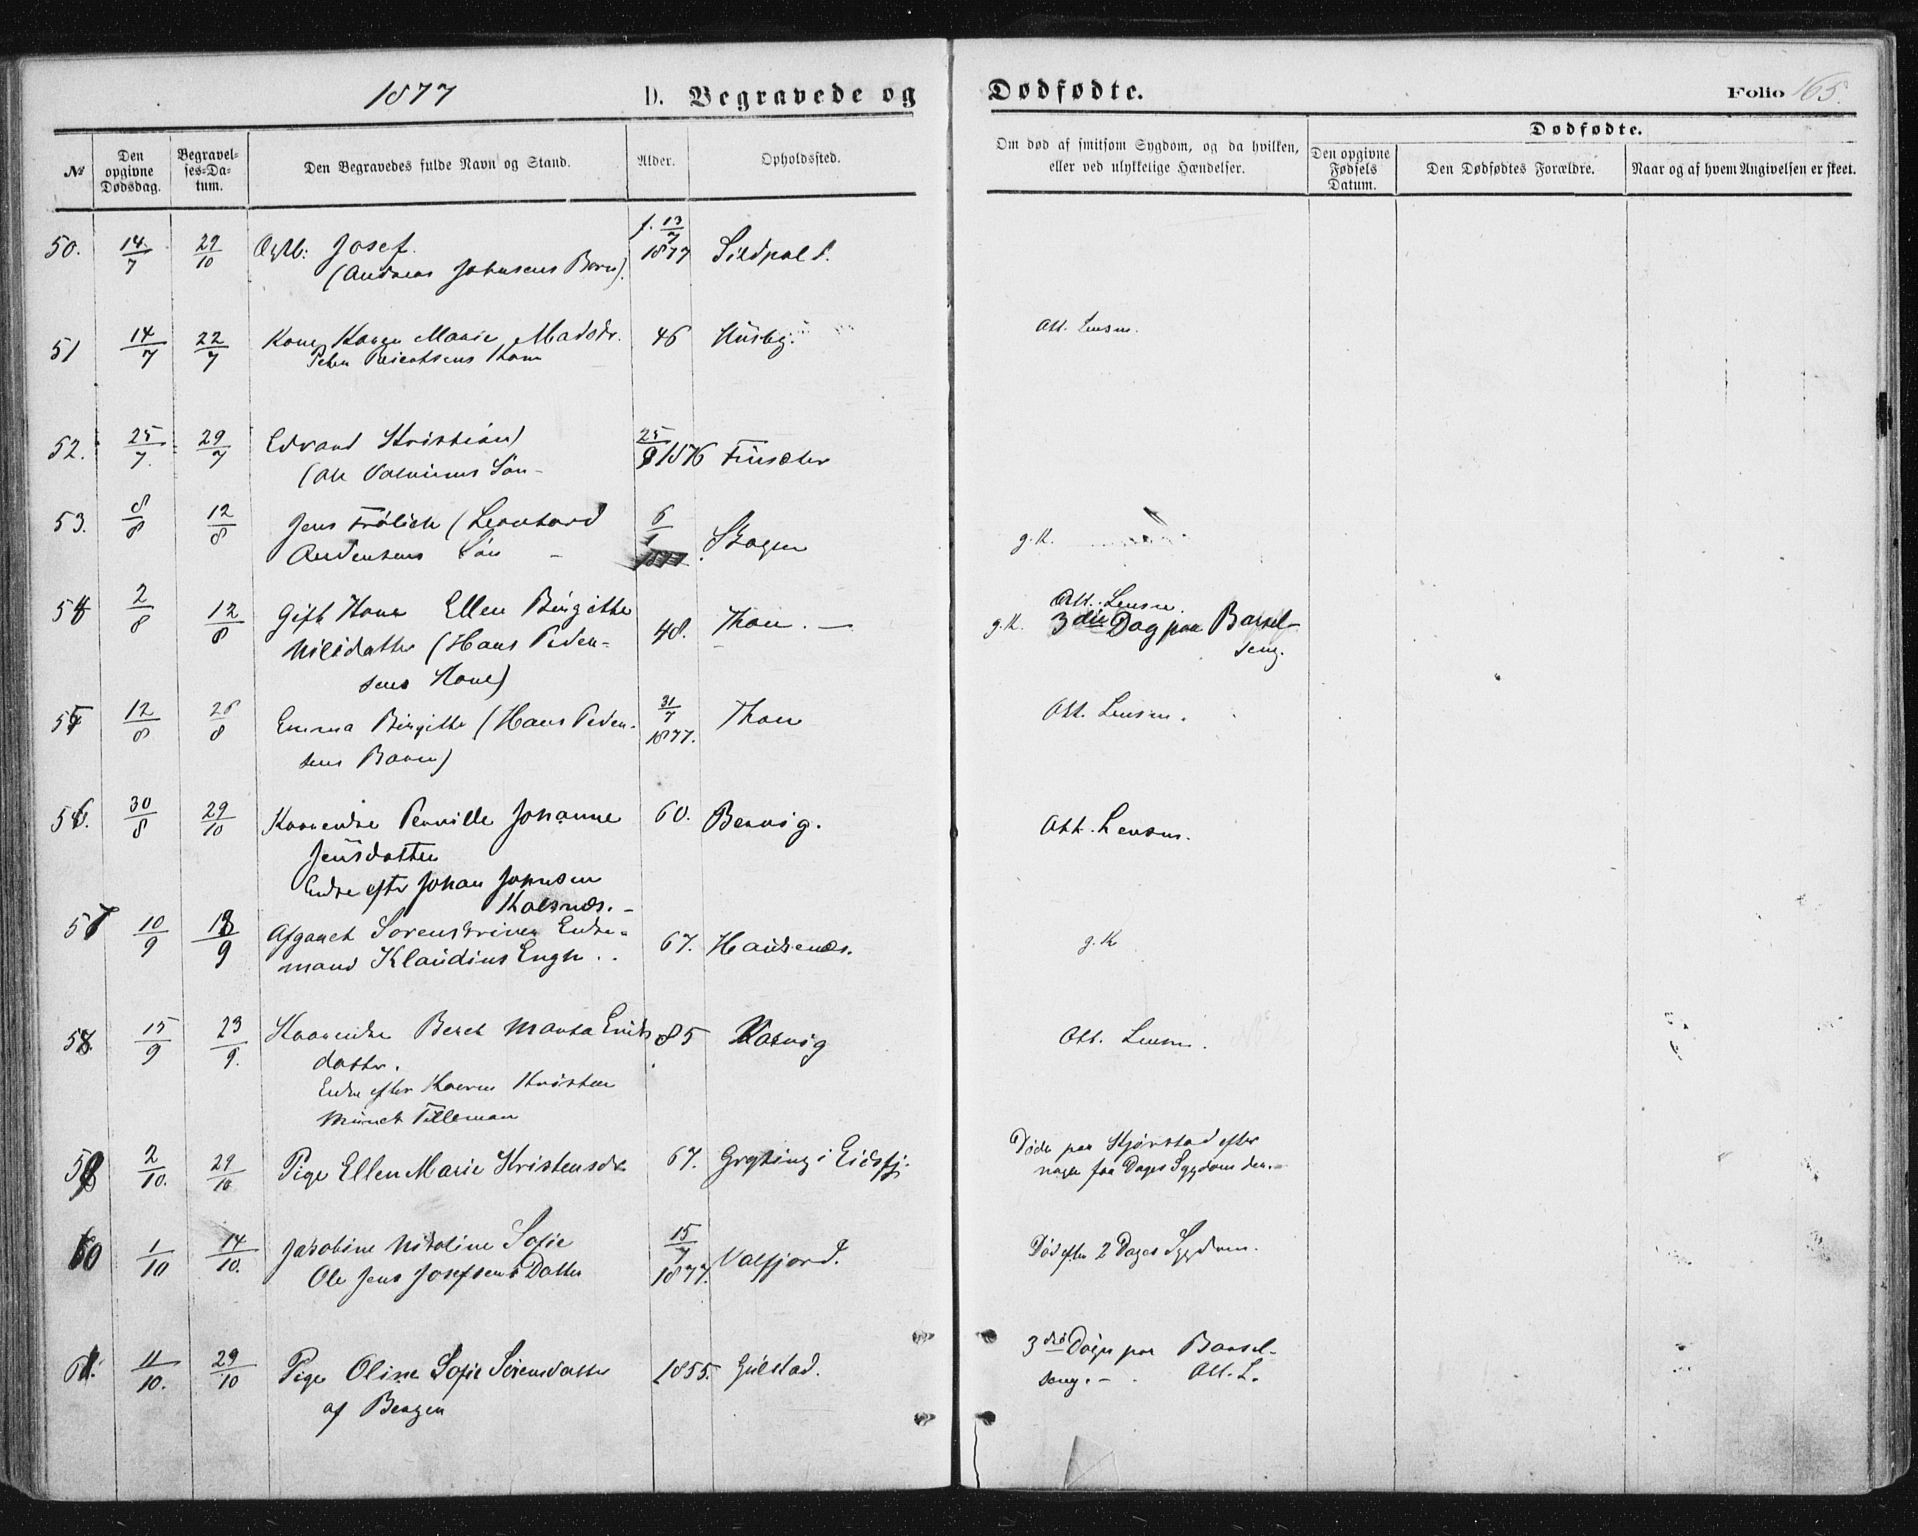 1877 D. Begravede og Dødfødte. Folio 165.
№
Den opgivne Dødsdag.
Begravel-
ses-Da-
tum.
Den Begravedes fulde Navn og Stand.
Alder.
Opholdssted.
Om død af smitsom Sygdom, og da hvilken,
eller ved ulykkelige Hændelser.
Dødfødte.
Den opgivne
Fødsels
Datum.
Den Dødfødtes Forældre.
Naar og af hvem Angivelsen er skeet.
50. 14/7 29/10 Josef f. 13/7 1877
(Andreas Johnsens Barn).
51 14/7 22/7 Kone Karen Marie Madsdr. 46 Husby. Att. Lensm.
Peter Kone
52. 25/7 29/7 Edvard Kristian 25/9 1876
(Ole Søn
53. 8/8 12/8 Jens Frölich (Leonhard 6/1 1877 Skogen g. K.
Andersens Søn
54 2/8 12/8 Gift Kone Ellen Birgitte 48. Thon. Att. Lensm.
Nilsdatter (Hans Peder- g. K. 3die Dag paa Barsel-
sens Kone) seng.
55 12/8 26/8 Emma Birgitte (Hans Peder- 31/7 1877. Thon Att. Lensm.
sens Barn)
56. 30/8 29/10 Kaarenke Pernille Johanne 60. Bervig. Att. Lensm.
Jensdatter
Enke efter Johan Johnsen
Kalsnæs.
57 10/9 13/9 Afgaaet Sorenskriver Enke- 67. Hauknæs. g. K
mand Klaudius Engh.
58. 15/9 23/9. Kaarenke Beret Marta Eriks 85 Att. Lensm.
datter.
Enke efter Kristen
Tilleman
59 2/10. 29/10 Pige Ellen Marie Kristensdr 67. Grytting i Eidsfj. Døde paa Skjørstad efter
nogle faa Dages Sygdom der.
60 1/10 14/10. Jakobine Nikoline Sofie 15/7 1877. Valfjord. Død efter 2 Dages Sygdom.
Ole Jens Josefsens Datter
61. 11/10. 29/10 Pige Oline Sofie Sørensdatter 1855. Gulstad. 3die Dag paa Barsel-
af Bergen seng. Att. L.